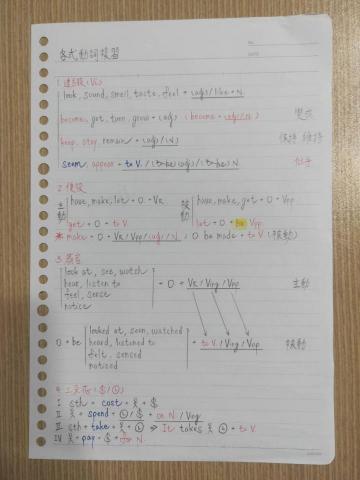 各式動詞複習
1. 連綴(Vi)
look, sound, smell, taste, feel + (adj) / like + N
become, get, turn, grow + (adj) (become + (adj) / N) 變成
keep, stay, remain + (adj) / (N) 保持 維持
seem, appear + to V. / (to be) (adj) / (to be) N 似乎
2. 使役
主動 have, make, let + O + VR
get + O + to V
被動 have, make, get + O + Vpp
let + O + be Vpp
* make + O + VR / Vpp / (adj) / N ; O be made + to V (被動)
3. 感官
look at, see, watch
hear, listen to
feel, sense
notice
+ O + VR / Ving / Vpp 主動
O + be
looked at, seen, watched
heard, listened to
felt, sensed
noticed
+ to V / Ving / Vpp 被動
I sth + cost + 人 + $
II 人 + spend + $ + on N / Ving
III sth + take + 人 + ⇒ It takes 人 + to V.
IV 人 + pay + $ + for N